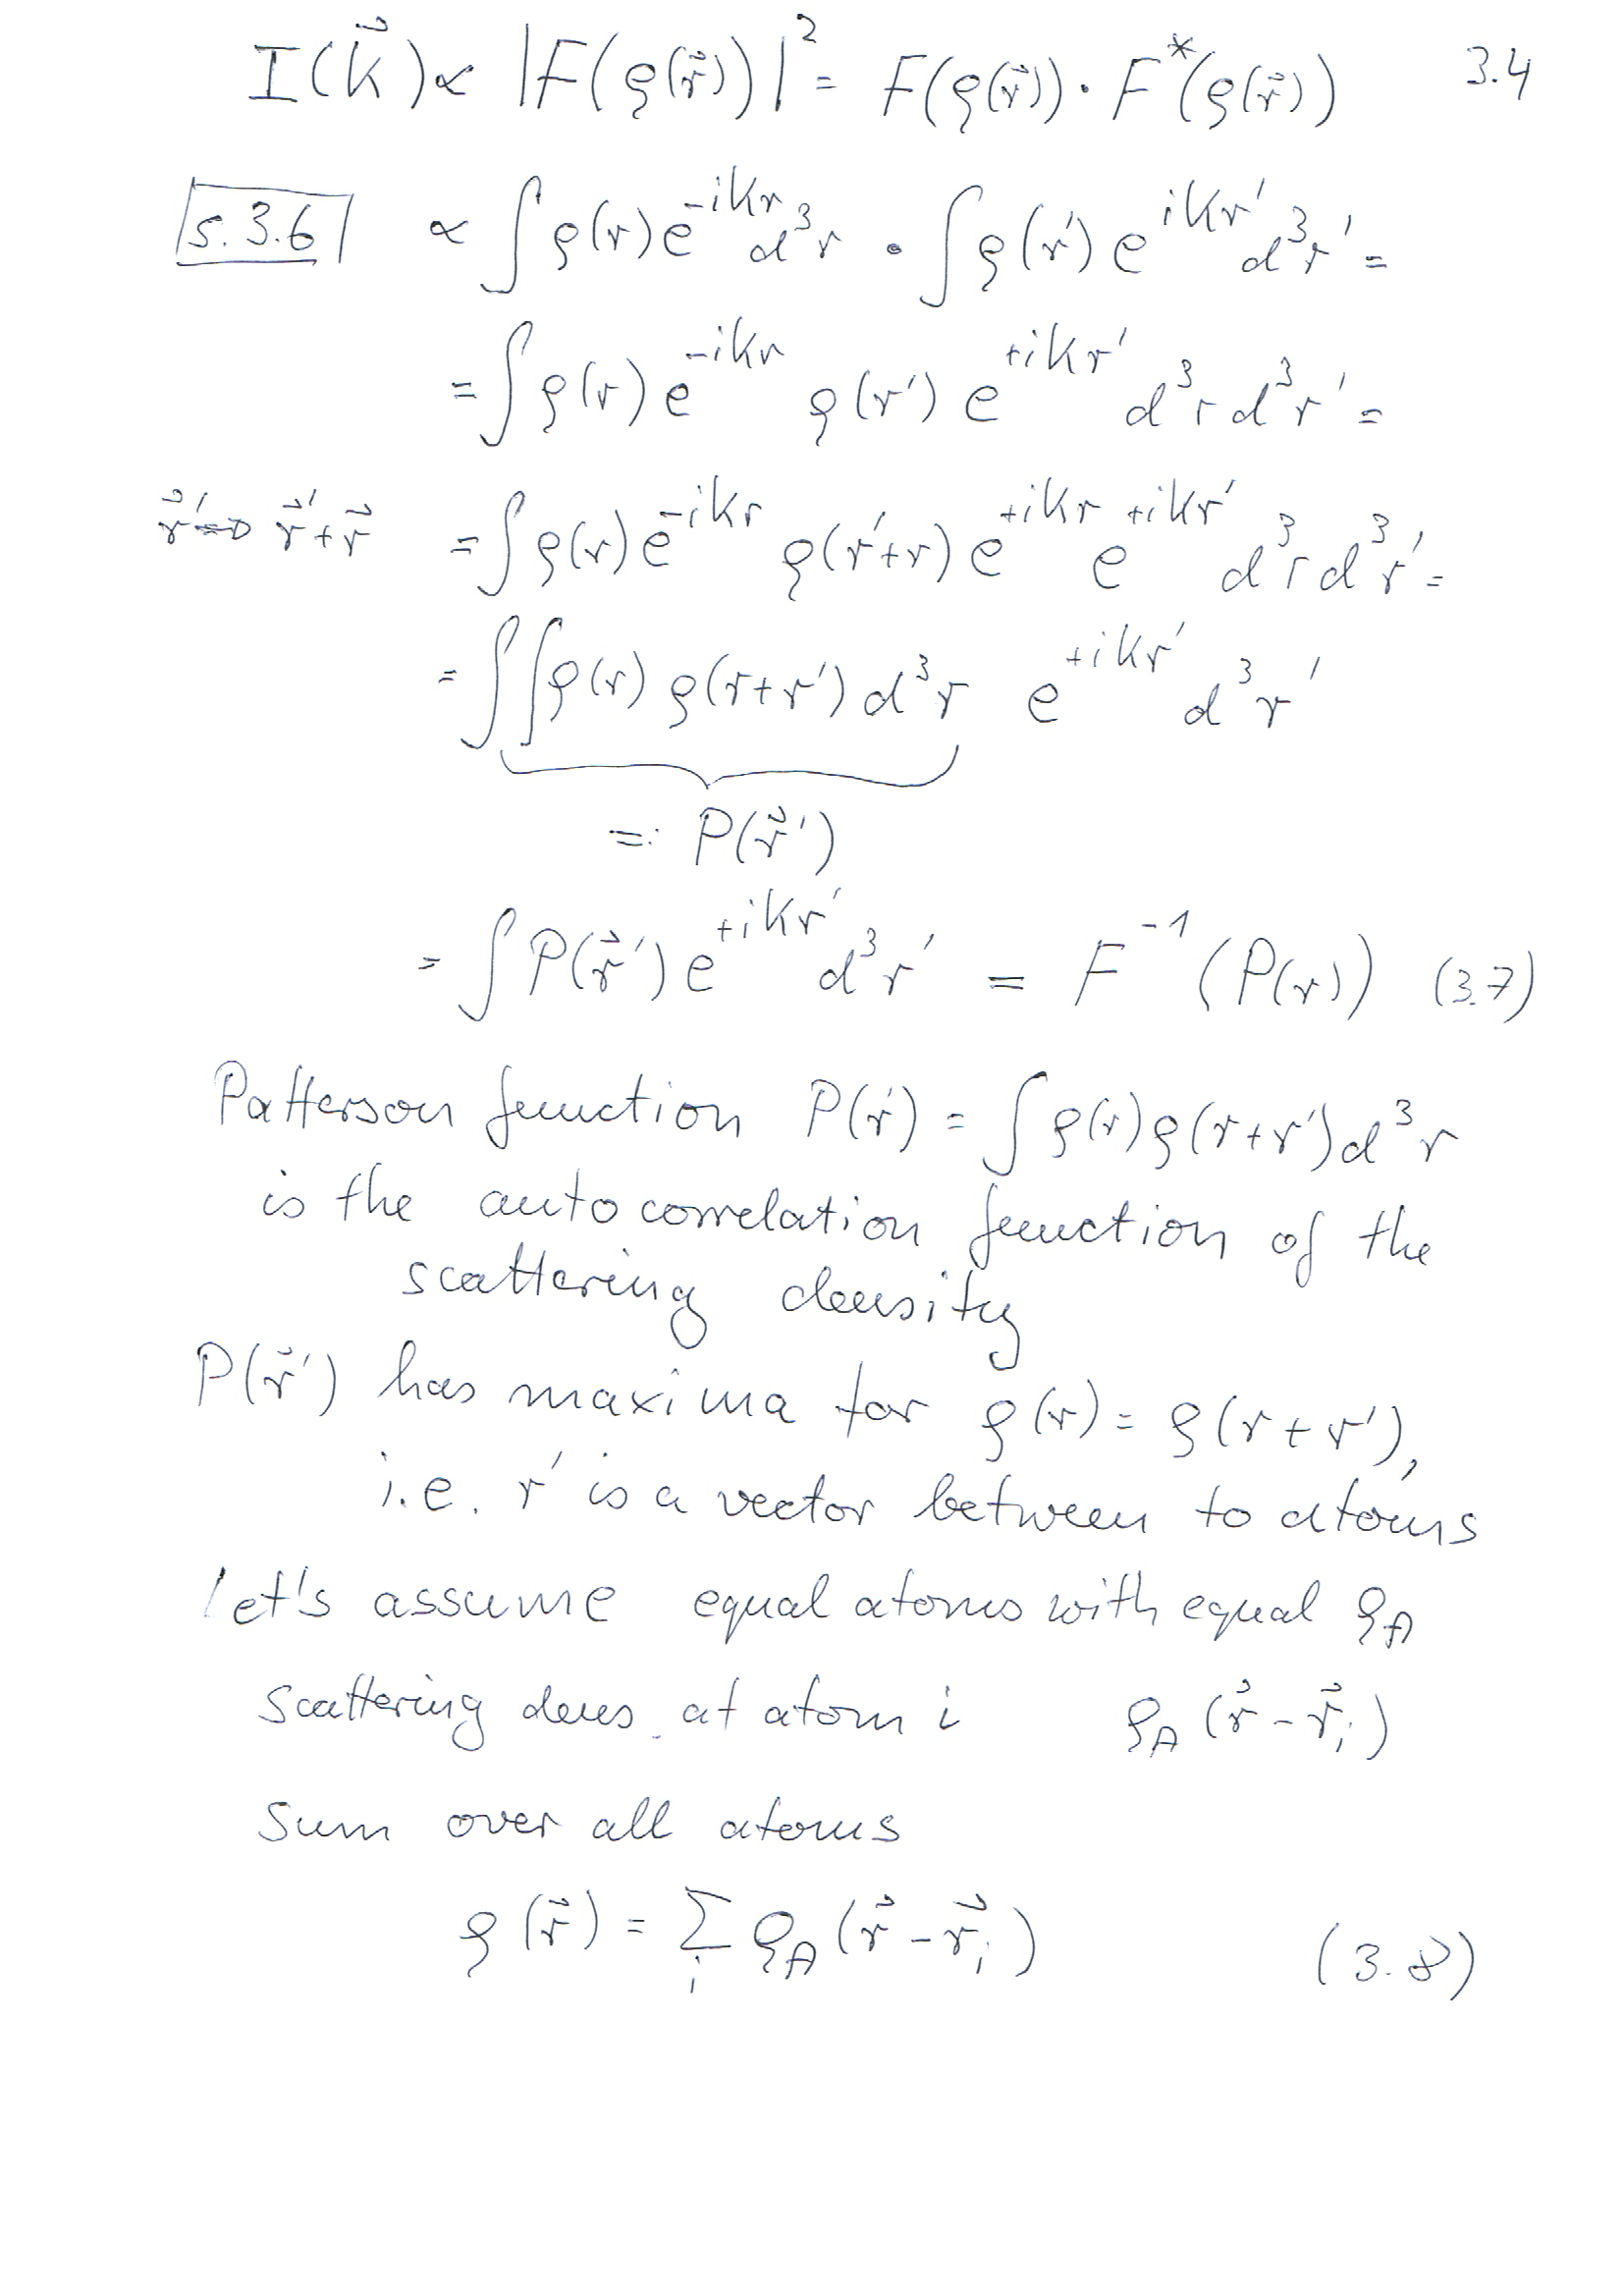 I(k⃗) ∝ |F(ρ(r⃗))|² = F(ρ(r⃗)) · F*(ρ(r⃗)) 3.4
s. 3.6 ∝ ∫ρ(r) e^{-ikr} d³r · ∫ρ(r') e^{ikr'} d³r' =
= ∫ρ(r) e^{-ikr} ρ(r') e^{+ikr'} d³r d³r' =
r⃗' ⇒ r⃗' + r⃗ = ∫ρ(r) e^{-ikr} ρ(r'+r) e^{+ikr} e^{+ikr'} d³r d³r' =
= ∫∫ρ(r) ρ(r+r') d³r e^{+ikr'} d³r'
=: P(r⃗')
= ∫P(r⃗') e^{+ikr'} d³r' = F^{-1}(P(r)) (3.7)
Patterson function P(r') = ∫ρ(r)ρ(r+r')d³r
is the autocorrelation function of the
scattering density
P(r⃗') has maxima for ρ(r) = ρ(r+r'),
i.e. r' is a vector between to atoms
let's assume equal atoms with equal ρ_A
scattering dens. at atom i ρ_A(r⃗-r⃗_i)
Sum over all atoms
ρ(r⃗) = Σ_i ρ_A(r⃗-r⃗_i) (3.8)